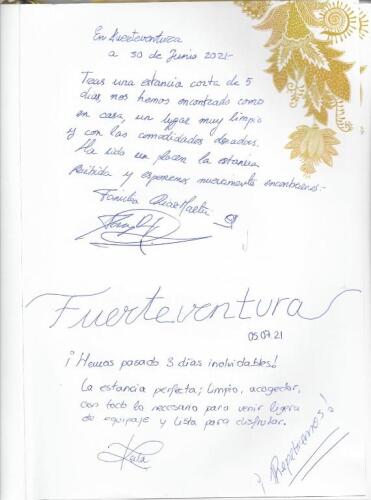 En Fuerteventura
a 30 de Junio 2021-
Tras una estancia corta de 5
días, nos hemos encontrado como
en casa, un lugar muy limpio
y con las comodidades deseadas.
Ha sido un placer la estancia
recibida y esperemos nuevamente encontrarnos.-
Familia
Fuerteventura
05.07.21
¡Hemos pasado 3 días inolvidables!
La estancia perfecta; limpio, acogedor,
con todo lo necesario para venir ligera
de equipaje y lista para disfrutar.
¡Repetiremos!